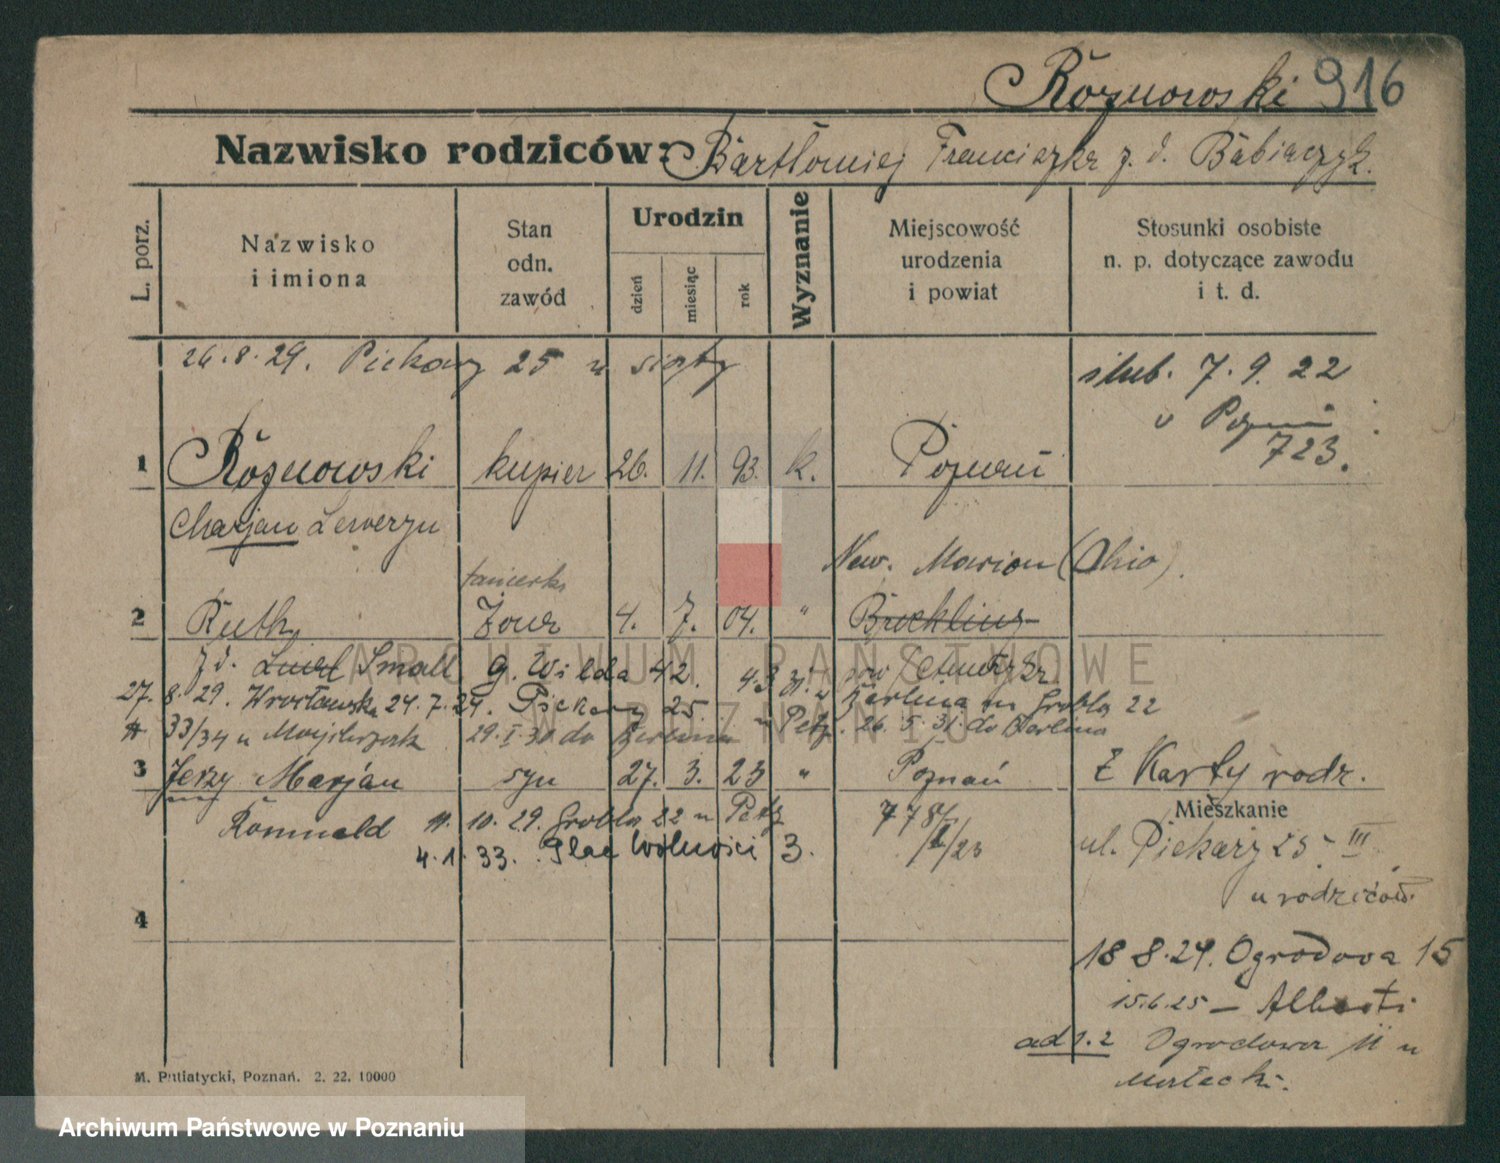 Rożnowski 916
Nazwisko rodziców: Bartłomiej Franciszka z. d. Babiaczyk.
L. porz.
Nazwisko i imiona
Stan odn. zawód
Urodzin
dzień
miesiąc
rok
Wyznanie
Miejscowość urodzenia i powiat
Stosunki osobiste n. p. dotyczące zawodu i t. d.
26.8.29. Piekary 25 u siostry
ślub. 7.9.22
723.
1 Rożnowski kupiec 26. 11. 93. k. Poznań
Marjan Seweryn
New. Marion (Ohio).
tancerka
2 Ruth żona 4. 7. 04. " Brookling
z d. Small g. Wilda 42.
27.8.29. Wrocławska 24.7.29. Piekary 25.
Berlina Grobla 22
33/34 u 29.I.31 do Berlina 26.5.31 do Berlina
3 Jerzy Marjan syn 27. 3. 23 " Poznań Z Karty rodz.
Mieszkanie
Romuald 10.29. Grobla 22 u
4.1.33. Plac Wolności 3.
ul. Piekary 25 III
u rodziców
4
18 8.24. Ogrodowa 15
15.6.25 –
ad 1.2 Ogrodowa 11 u
M. Putiatycki, Poznań. 2. 22. 10000
ARCHIWUM PAŃSTWOWE
W POZNANIU
Archiwum Państwowe w Poznaniu